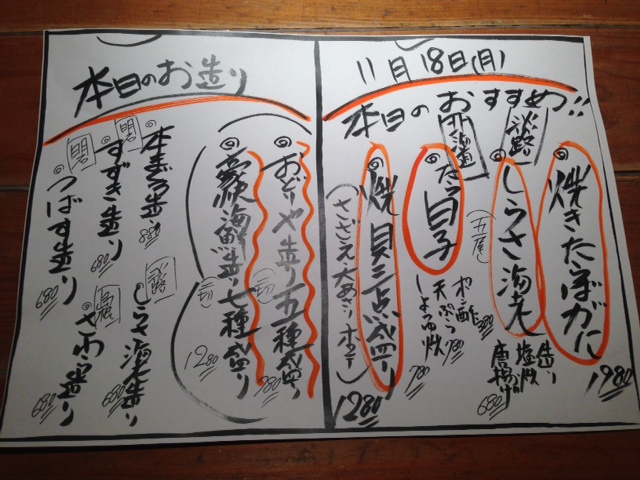 11月18日(月)
本日のおすすめ!!
◎焼きたらばがに
1980
淡路
◎しらさ海老
(五尾)
造り
塩焼
唐揚げ
680
北海道
◎たら白子
ポン酢
天ぷら 780
しょうゆ焼
780
◎焼貝三点盛り
(さざえ大あさりホタテ)
1280
本日のお造り
◎おどりや造り五種盛り
(二切)
980
◎豪快海鮮造り七種盛り
(二切)
1280
本まぐろ造り
880
明石
すずき造り
680
明石
つばす造り
680
淡路
しらさ海老造り
680
さわら造り
680